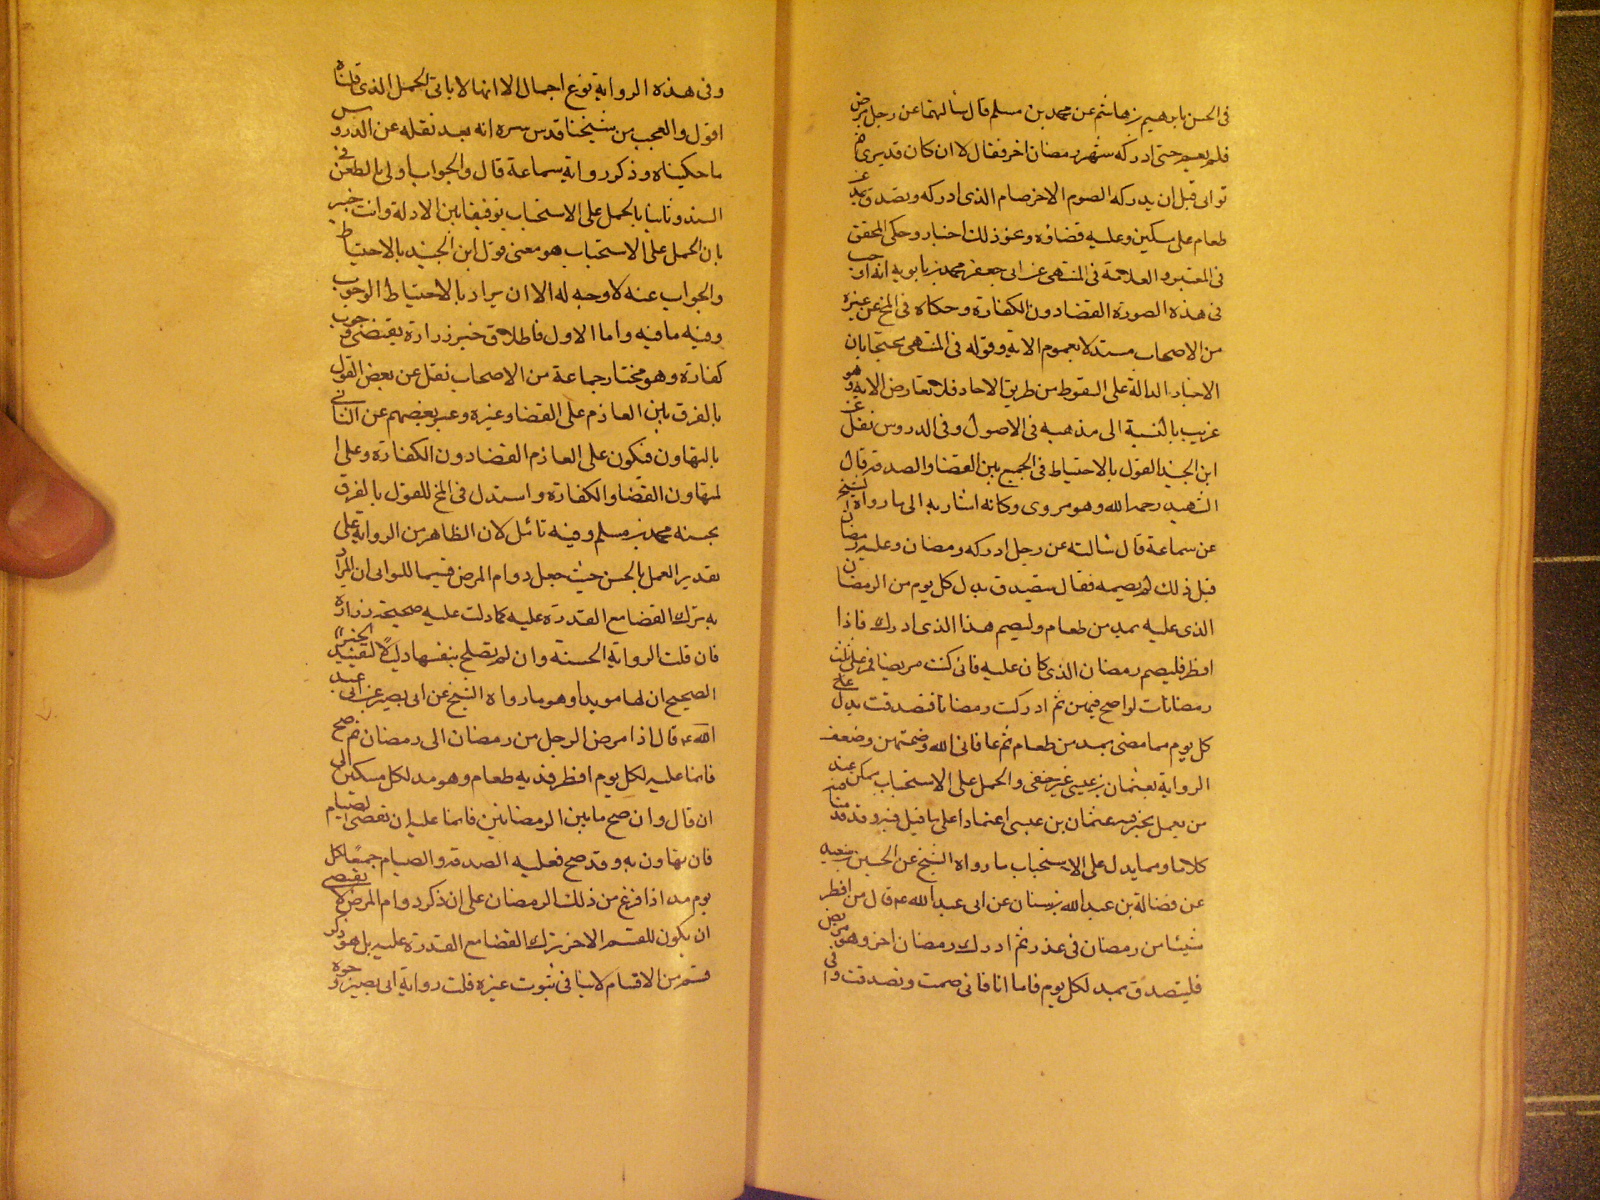 في الحسن بابرهيم بن هاشم عن محمد بن مسلم قال سألتهما عن رجل مرض
فلم يصم حتى ادركه شهر رمضان اخر فقال لا ان كان قد برئ ثم
توانى قبل ان يدركه الصوم الاخر صام الذى ادركه وتصدق عن
طعام على مسكين وعليه قضاؤه وغير ذلك اخبار وحكى المحقق
في المعتبر والعلامة في المنتهى عن ابى جعفر محمد بن بابويه انه اوجب
في هذه الصورة القضا دون الكفارة وحكاه في المخ عن غيره
من الاصحاب مستدلا بعموم الاية وقوله في المنتهى محتجا بان
الاخبار الدالة على السقوط من طريق الاحاد فلا تعارض الاية وهو
غريب بالنسبة الى مذهبه في الاصول وفي الدروس نقل عن
ابن الجنيد القول بالاحتياط في الجمع بين القضا والصدقة قال
الشهيد رحمه الله وهو مروى وكانه اشار به الى ما رواه الشيخ
عن سماعة قال سألته عن رجل ادركه رمضان وعليه رمضان
قبل ذلك لم يصمه فقال يتصدق بدل كل يوم من الرمضان
الذى عليه بمد من طعام وليصم هذا الذى ادرك فاذا
افطر فليصم رمضان الذى كان عليه فانى كنت مريضا فمر على ثلث
رمضانات لم اصح فيهن ثم ادركت رمضانا فتصدقت بدل
كل يوم مما مضى بمد من طعام ثم عافانى الله وصمتهن وضعف
الرواية بعثمان بن عيسى غير خفى والحمل على الاستحباب ممكن عند
من يعمل بخبر عثمان بن عيسى اعتمادا على ما قيل فيه وقد قدمنا
كلاما ومما يدل على الاستحباب ما رواه الشيخ عن الحسين بن سعيد
عن فضالة بن عبد الله بن سنان عن ابى عبد الله ع قال من افطر
شيئا من رمضان في عذر ثم ادرك رمضان اخر وهو مريض
فليتصدق بمد لكل يوم فاما انا فانى صمت وتصدقت
وفي هذه الرواية نوع اجمال الا انها لا ياتى الحمل الذى قلناه
اقول والعجب من شيخنا قدس سره انه بعد نقله عن الدروس
ما حكيناه وذكر رواية سماعة قال والجواب اولى بالطعن في
السند وثانيا بالحمل على الاستحباب توفيقا بين الادلة وانت خبير
بان الحمل على الاستحباب هو معنى قول ابن الجنيد بالاحتياط
والجواب عنه لا وجه له الا ان يراد بالاحتياط الوجوب
وفيه ما فيه واما الاول فاطلاق خبر زرارة يقتضى وجوب
كفارة وهو مختار جماعة من الاصحاب نقل عن بعض القول
بالفرق بين العازم على القضا وغيره وعبر بعضهم عن الثانى
بالتهاون فتكون على العازم القضا دون الكفارة وعلى ا
لمتهاون القضا والكفارة واستدل في المخ للقول بالفرق
بحسنه محمد بن مسلم وفيه تامل لان الظاهر من الرواية على
تقدير العمل بالحسن حيث جعل دوام المرض قسيما للتوانى ان المراد
به ترك القضا مع القدرة عليه كما دلت عليه صحيحة زرارة
فان قلت الرواية الحسنة وان لم تصلح بنفسها دليلا لتقييد الخبر
الصحيح ان لها مويدا وهو ما رواه الشيخ عن ابى بصير عن ابى عبد
الله ع قال اذا مرض الرجل من رمضان الى رمضان ثم صح
فانما عليه لكل يوم افطر فدية طعام وهو مد لكل مسكين الى
ان قال وان صح ما بين الرمضانين فانما عليه ان يقضى الصيام
فان تهاون به وقد صح فعليه الصدقة والصيام جميعا لكل
يوم مد اذا فرغ من ذلك الرمضان على ان ذكر دوام المرض لا يقتضى
ان يكون للقسم الاخر ترك القضا مع القدرة عليه بل هو ذكر
قسم من الاقسام لا ينافى ثبوت غيره قلت رواية ابى بصير